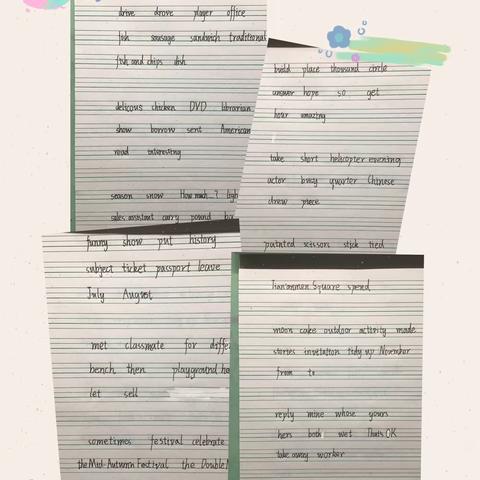 drive drove player office
fish sausage sandwich traditional
fish and chips dish
delicous chicken DVD librarian
show borrow sent American
read interesting
season snow How much...? ligh
sales assistant carry pound
build place thousand circle
answer hope so get
hour amazing
take short helicopter evening
actor busy quarter Chinese
drew piece
painted scissors stick tied
funny show put history
subject ticket passport leave
July August
met classmate for diffe
bench then playground
let sell
sometimes festival celebrate
the Mid-Autumn Festival the Double
Tian'anmen Square spend
moon cake outdoor activity made
stories invitation tidy up November
from to
reply mine whose yours
hers both wet That's OK
take away worker